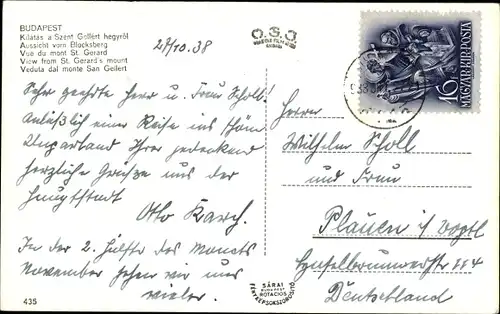 BUDAPEST
Kilátás a Szent Gellért hegyről
Aussicht vom Blocksberg
Vue du mont St. Gerard
View from St. Gerard's mount
Veduta dal monte San Gellert
29/10.38
O.S.J
16
MAGYAR·KIR·POSTA
Sehr geehrte Herr u. Frau Scholl!
Anläßlich einer Reise ins schöne
Ungarland Ihrer gedenkend
herzliche Grüße aus der
Hauptstadt
Otto Karch.
In der 2. Hälfte des Monats
November sehen wir uns
wieder.
Herrn
Wilhelm Scholl
und Frau
Plauen i/ Vogtl
Deutschland
SÁRAI
BUDAPEST
ROTACIOS
FÉNYKÉPSOKSZOROSÍTÓ
435